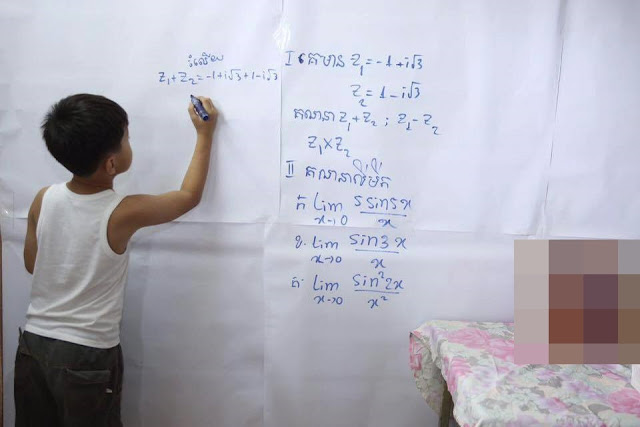 ចម្លើយ
Z₁+Z₂=-1+i√3+1-i√3
I គេមាន Z₁=-1+i√3
Z₂=1-i√3
គណនា Z₁+Z₂ ; Z₁-Z₂
Z₁×Z₂
II គណនាលីមីត
ក. lim x→0 5sin5x/x
ខ. lim x→0 sin3x/x
គ. lim x→0 sin²2x/x²